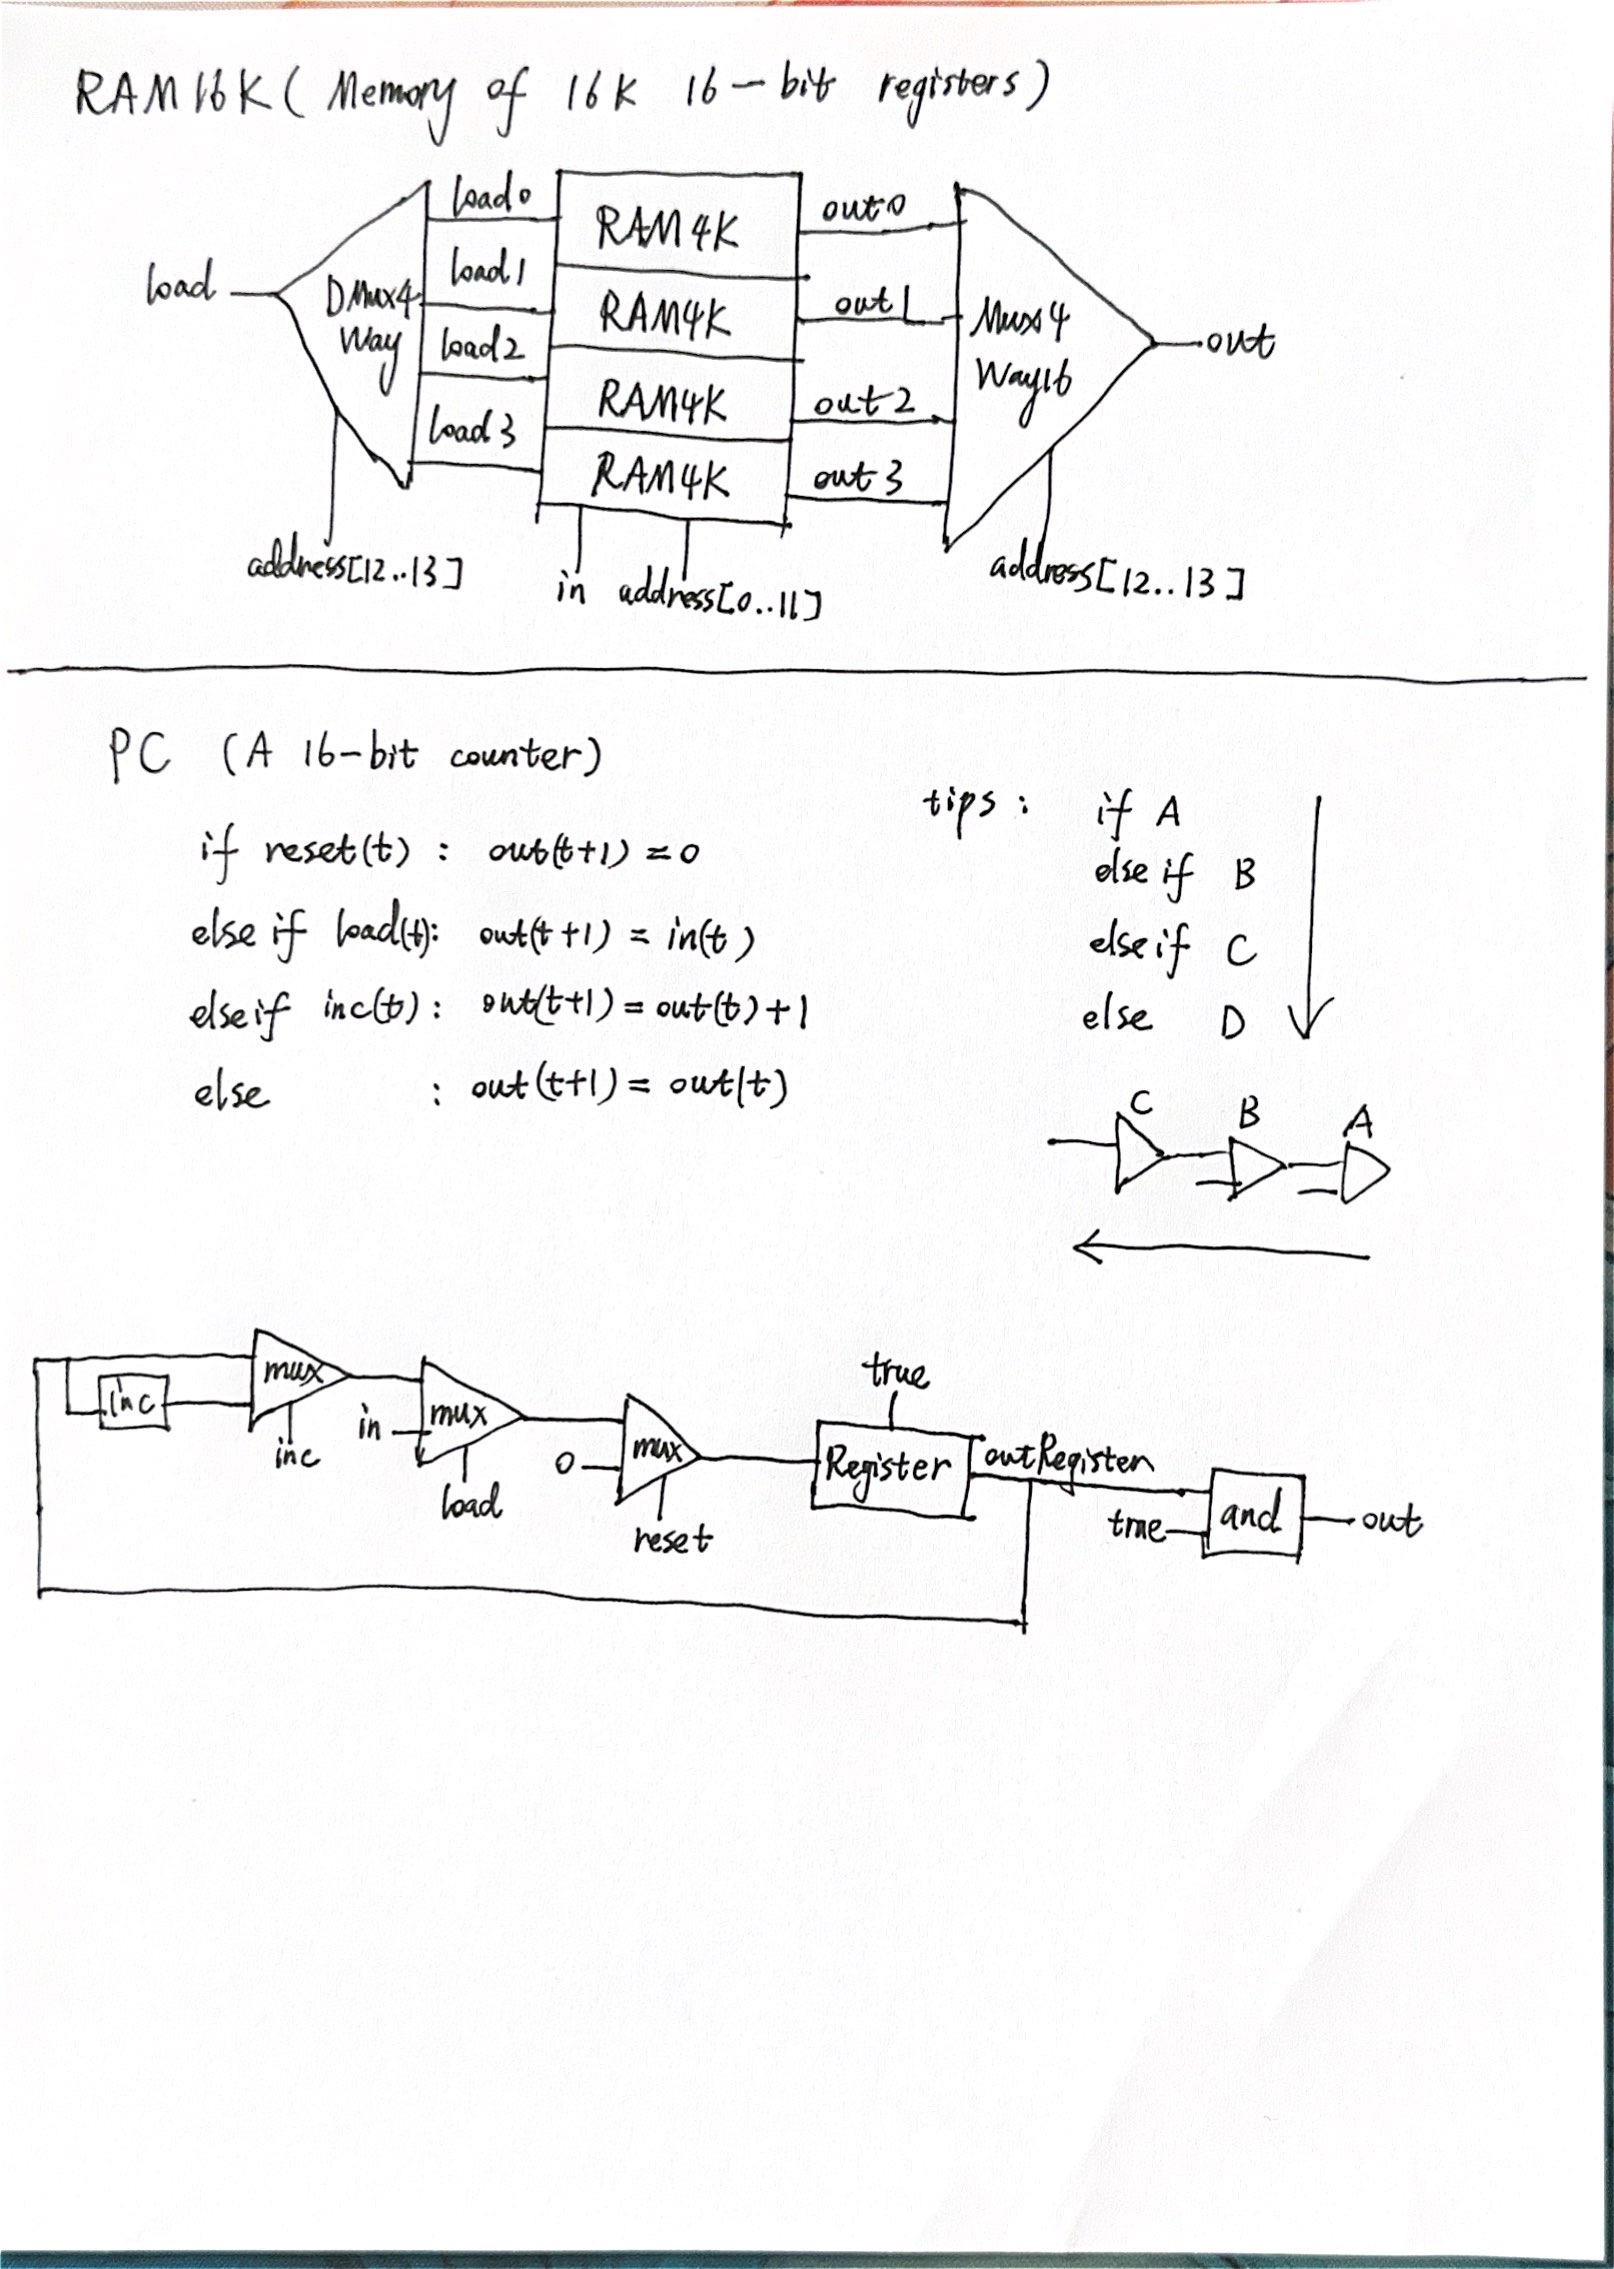 RAM16K (Memory of 16K 16-bit registers)
load
DMux4
Way
load0
load1
load2
load3
RAM4K
RAM4K
RAM4K
RAM4K
out0
out1
out2
out3
Mux4
Way16
out
address[12..13]
in
address[0..11]
address[12..13]
PC (A 16-bit counter)
if reset(t) : out(t+1) = 0
else if load(t): out(t+1) = in(t)
else if inc(t) : out(t+1) = out(t)+1
else : out(t+1) = out(t)
tips :
if A
else if B
else if C
else D
C
B
A
inc
mux
inc
in
mux
load
0
mux
reset
true
Register
outRegister
true
and
out